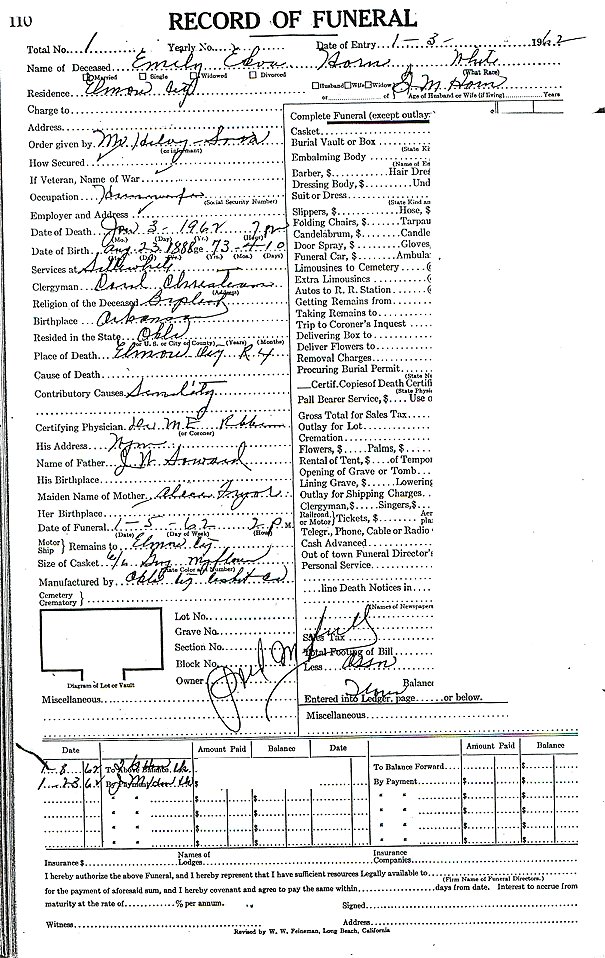 110
RECORD OF FUNERAL
Total No. 1 Yearly No. Date of Entry 1-3- 1962
Name of Deceased Emily Horn White
Married Single Widowed Divorced (What Race)
Residence Elmore City Husband Wife Widow J. M. Horn
or of Age of Husband or Wife (if living) Years
Charge to
Address
Order given by
(or informant)
How Secured
If Veteran, Name of War
Occupation Housewife
(Social Security Number)
Employer and Address
Date of Death Jan 3-1962
(Mo.) (Day) (Yr.) (Hour)
Date of Birth Aug 23 1888 Age 73-4-10
(Mo.) (Day) (Yr.) (Yrs.) (Mos.) (Days)
Services at
Clergyman
(Address)
Religion of the Deceased Baptist
Birthplace Arkansas
Resided in the State Okla
(or U. S. or City or County) (Years) (Months)
Place of Death Elmore City R.4
Cause of Death
Contributory Causes Senility
Certifying Physician Dr. M E Robberson
(or Coroner)
His Address Wynn
Name of Father J. W. Howard
His Birthplace
Maiden Name of Mother
Her Birthplace
Date of Funeral 1-5-62 2 P. M.
(Date) (Day of Week) (Hour)
Motor Ship } Remains to Elmore City
Size of Casket 6/6
(State Color and Number)
Manufactured by Okla City Casket Co
Cemetery
Crematory }
Lot No.
Grave No.
Section No.
Block No.
Owner
Diagram of Lot or Vault
Miscellaneous
Complete Funeral (except outlay
Casket
Burial Vault or Box
(State Ki
Embalming Body
(Name of E
Barber, $ Hair Dre
Dressing Body, $ Und
Suit or Dress
(State Kind an
Slippers, $ Hose, $
Folding Chairs, $ Tarpau
Candelabrum, $ Candle
Door Spray, $ Gloves,
Funeral Car, $ Ambula
Limousines to Cemetery (
Extra Limousines (
Autos to R. R. Station (
Getting Remains from
Taking Remains to
Trip to Coroner's Inquest
Delivering Box to
Deliver Flowers to
Removal Charges
Procuring Burial Permit
(State N
Certif. Copies of Death Certifi
(State Physi
Pall Bearer Service, $ Use o
Gross Total for Sales Tax
Outlay for Lot
Cremation
Flowers, $ Palms, $
Rental of Tent, $ of Tempor
Opening of Grave or Tomb
Lining Grave, $ Lowering
Outlay for Shipping Charges
Clergyman, $ Singers, $
Railroad or Motor } Tickets, $ Aer pla
Telegr., Phone, Cable or Radio
Cash Advanced
Out of town Funeral Director's
Personal Service
line Death Notices in
(Names of Newspapers
Sales Tax
Total Footing of Bill
Less Assn
Balance
Entered into Ledger, page or below.
Miscellaneous
Paid in full
Date Amount Paid Balance Date Amount Paid Balance
1-8 62 To Above Balance $ To Balance Forward $ $
1-23 62 By Payment By Payment
" " $ $ " " $ $
" " $ $ " " $ $
" " $ $ " " $ $
" " $ $ " " $ $
Insurance $ Names of Lodges Insurance Companies
I hereby authorize the above Funeral, and I hereby represent that I have sufficient resources Legally available to
(Firm Name of Funeral Directors.)
for the payment of aforesaid sum, and I hereby covenant and agree to pay the same within days from date. Interest to accrue from
maturity at the rate of % per annum. Signed
Witness Address
Revised by W. W. Feineman, Long Beach, California